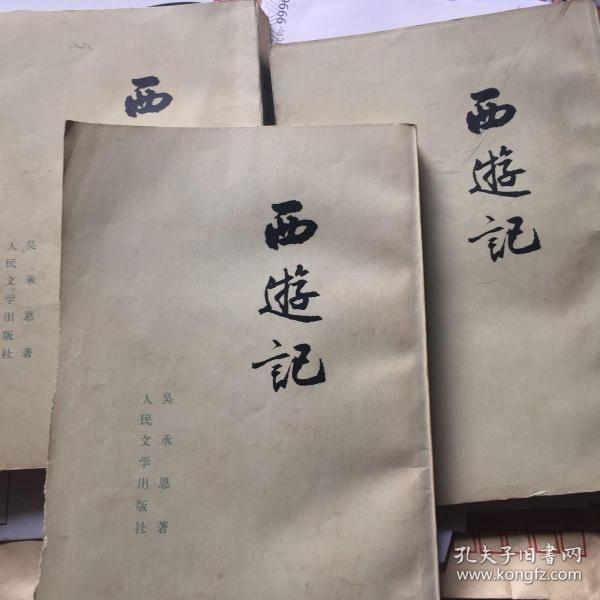 9666
西
吴承恩著
人民文学出版社
西遊記
西遊記
吴承恩著
人民文学出版社
孔夫子旧书网
www.kongfz.com